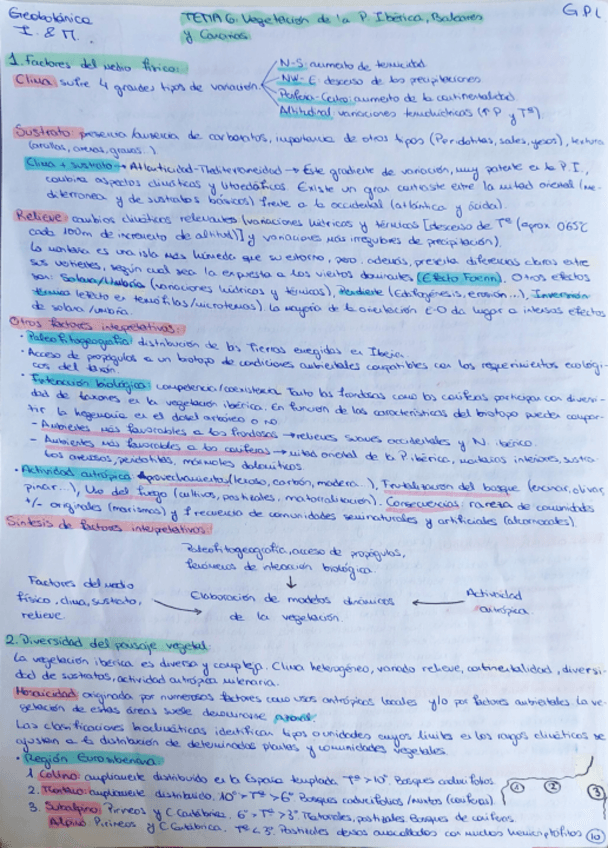 Geobotánica
I. & M.
TEMA 6. Vegetación de la P. Ibérica, Baleares
y Canarias
G.P.L
1. Factores del medio físico:
Clima sufre 4 grandes tipos de variación
N-S: aumento de termicidad
NW-E: descenso de las precipitaciones
Periferia-Centro: aumento de la continentalidad
Altitudinal: variaciones termoclimáticas (↑P y Tª).
Sustrato: presencia/ausencia de carbonatos, importancia de otros tipos (Peridotitas, sales, yesos), textura
(arcillas, arenas, gravas..)
Clima + sustrato → Atlanticidad-Mediterraneidad → Este gradiente de variación, muy potente en la P.I.,
combina aspectos climáticos y litoedáficos. Existe un gran contraste entre la mitad oriental (me-
diterránea y de sustratos básicos) frente a la occidental (atlántica y ácida).
Relieve cambios climáticos relevantes (variaciones hídricas y térmicas [descenso de Tª (aprox 0,65ºC
cada 100m de incremento de altitud)] y variaciones más irregulares de precipitación).
La montaña es una isla más húmeda que su entorno, pero además, presenta diferencias claras entre
sus vertientes, según cual sea la expuesta a los vientos dominantes (Efecto Foenn). Otros efectos
son: Solana/Umbría (variaciones hídricas y térmicas), Pendiente (Edafogénesis, erosión...), Inversión
térmica (efecto en termófilas/microtermas). La mayoría de la orientación E-O da lugar a intensos efectos
de solana/umbría.
Otros factores interpretativos:
• Paleofitogeografía: distribución de las Tierras emergidas en Iberia.
• Acceso de propágulos a un biotopo de condiciones ambientales compatibles con los requerimientos ecológi-
cos del taxón.
• Interacción biológica: competencia/coexistencia. Tanto las frondosas como las coníferas participan con diversi-
dad de taxones en la vegetación ibérica. En función de las características del biotopo pueden compar-
tir la hegemonía en el dosel arbóreo o no.
- Ambientes más favorables a las frondosas → relieves suaves occidentales y N. ibérico.
- Ambientes más favorables a las coníferas → mitad oriental de la P. ibérica, montañas interiores, sustra-
tos arenosos, peridotitas, mármoles dolomíticos.
• Actividad antrópica: Aprovechamiento (leñoso, carbón, madera...), Frutalización del bosque (encinar, olivar
pinar...), Uso del fuego (cultivos, pastizales, matorralización). Consecuencias: rareza de comunidades
+/- originales (marismas) y frecuencia de comunidades seminaturales y artificiales (alcornocales)
Síntesis de factores interpretativos:
Paleofitogeografía, acceso de propágulos,
fenómenos de interacción biológica.
↓
Factores del medio
físico, clima, sustrato,
relieve.
Elaboración de modelos dinámicos
de la vegetación.
Actividad
antrópica.
2. Diversidad del paisaje vegetal
La vegetación ibérica es diversa y compleja. Clima heterogéneo, variado relieve, continentalidad, diversi-
dad de sustratos, actividad antrópica milenaria.
Mosaicidad: originada por numerosos factores como usos antrópicos locales y/o por factores ambientales. La ve-
getación de estas áreas suele denominarse
Las clasificaciones bioclimáticas identifican tipos o unidades cuyos límites en los rasgos climáticos se
ajustan a la distribución de determinadas plantas y comunidades vegetales.
• Región Eurosiberiana:
1. Colino: ampliamente distribuido en la España templada. Tª > 10º. Bosques caducifolios.
2. Montano: ampliamente distribuido. 10º > Tª > 6º. Bosques caducifolios/mixtos (coníferas).
3. Subalpino: Pirineos y C. Cantábrica. 6º > Tª > 3º. Matorrales, pastizales. Bosques de coníferas.
Alpino: Pirineos y C. Cantábrica. Tª < 3º. Pastizales densos amacollados con muchos hemicriptófitos
1
2
3
10